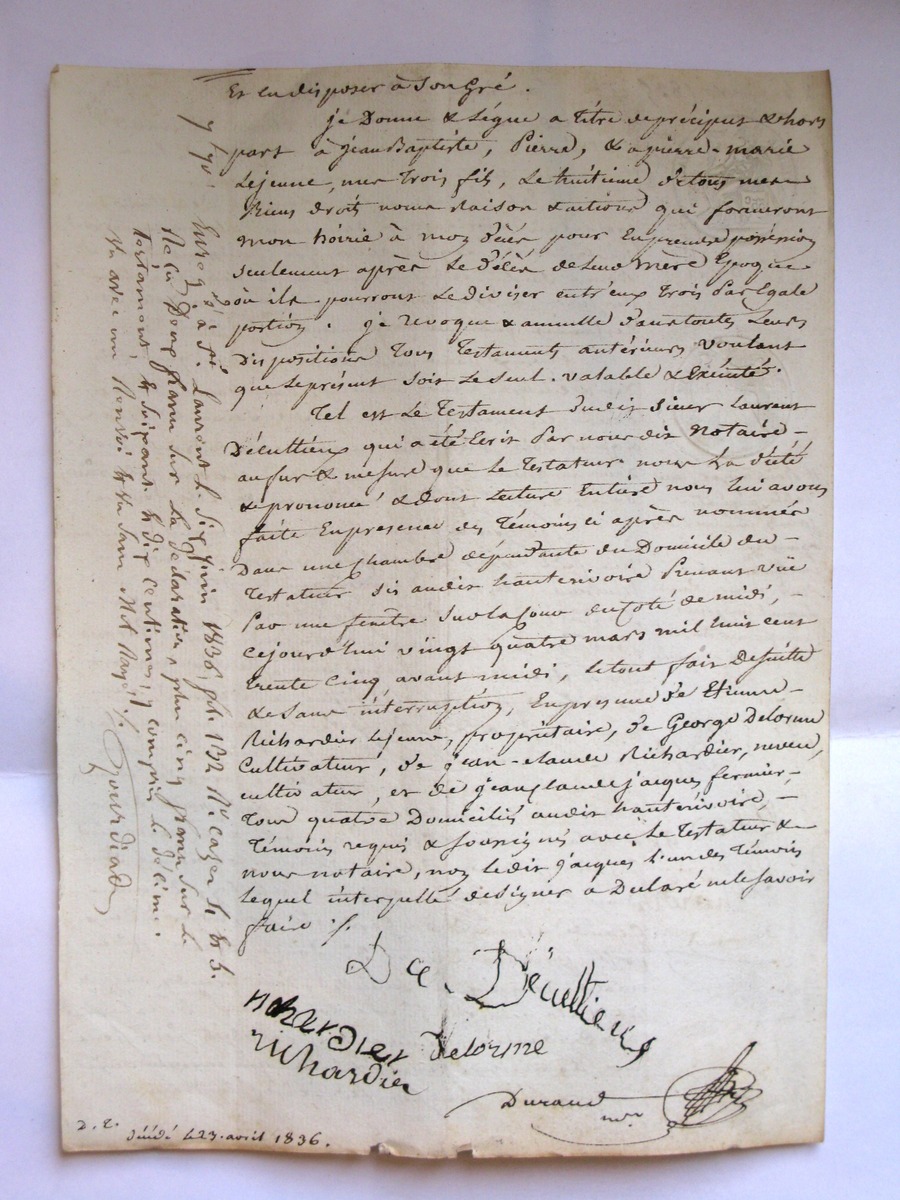 Et en disposer à Son Gré.
je Donne & Légue a titre de précipus & hors
part à jean Baptiste, Pierre, & a pierre-marie
Lejeune, mes trois fils, Le huitième de tous mes
Biens droits noms Raison & actions qui formeront
mon hoirie à mon décès pour En prendre possession
seulement après Le Décès de Leur Mère Epoque
où ils pourront Le diviser entr'eux trois Par Egale
portion. je revoque & annulle dans toutes Leurs
Dispositions Tous Testaments antérieurs Voulant
que Le présent soit Le seul valable & Exécuté.
Tel est Le Testament dudit Sieur Laurent
Décultieux qui a été Ecrit Par nous dit Notaire
au fur & mesure que Le Testateur nous L'a dicté
& prononcé & dont Lecture Entière nous lui avons
faite En presence des Témoins ci après nommés
Dans une chambre dépendante du Domicile du
Testateur sis audit hauterivoire Prenant vüe
Par une fenêtre Sur la Cour du Coté de midi,
cejourd'hui vingt quatre mars mil huit cent
trente Cinq avant midi, Le tout fait De suitte
& sans interruption, En presence d'Etienne
Richardier Lejeune, propriétaire, de George Delorme
Cultivateur, de jean-claude Richardier, neveu,
cultivateur, et de jean claude jacques fermier,
Tous quatre Domiciliés audit hauterivoire,
Témoins requis & soussignés avec Le Testateur &
nous notaire, non Ledit jacques l'un des Témoins
Lequel interpellé de signer a Déclaré ne le savoir
faire ./.
Décultieux
richardier Delorme
richardier
Durand
nre
D. E.
décédé le 23. avril 1836.
Enreg.é à St Laurent le six juin 1836, fol. 132 Rº cases 4 & 5.
Reçu Cinq francs sur la déclaration, plus cinq francs sur le
testament, & cinquante & dix centimes, y compris le décime.
Gourdiat